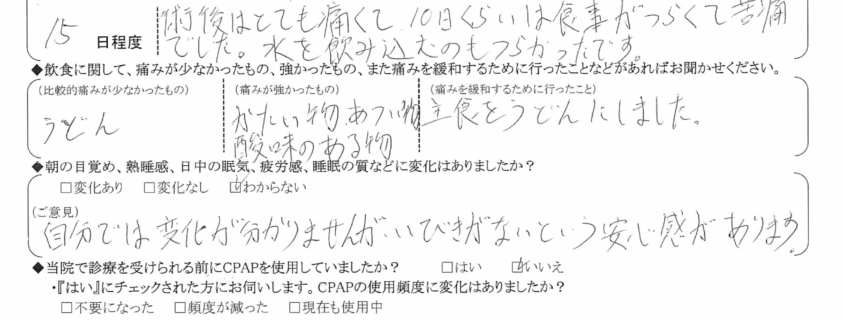 術後はとても痛くて10日くらいは食事がつらくて苦痛
15 日程度 でした。水を飲み込むのもつらかったです。
◆飲食に関して、痛みが少なかったもの、強かったもの、また痛みを緩和するために行ったことなどがあればお聞かせください。
(比較的痛みが少なかったもの) (痛みが強かったもの) (痛みを緩和するために行ったこと)
うどん かたい物 あつい物 主食をうどんにしました。
酸味のある物
◆朝の目覚め、熟睡感、日中の眠気、疲労感、睡眠の質などに変化はありましたか？
□変化あり □変化なし ☑わからない
(ご意見)
自分では変化が分かりませんが、いびきがないという安心感があります。
◆当院で診療を受けられる前にCPAPを使用していましたか？ □はい ☑いいえ
・『はい』にチェックされた方にお伺いします。CPAPの使用頻度に変化はありましたか？
□不要になった □頻度が減った □現在も使用中